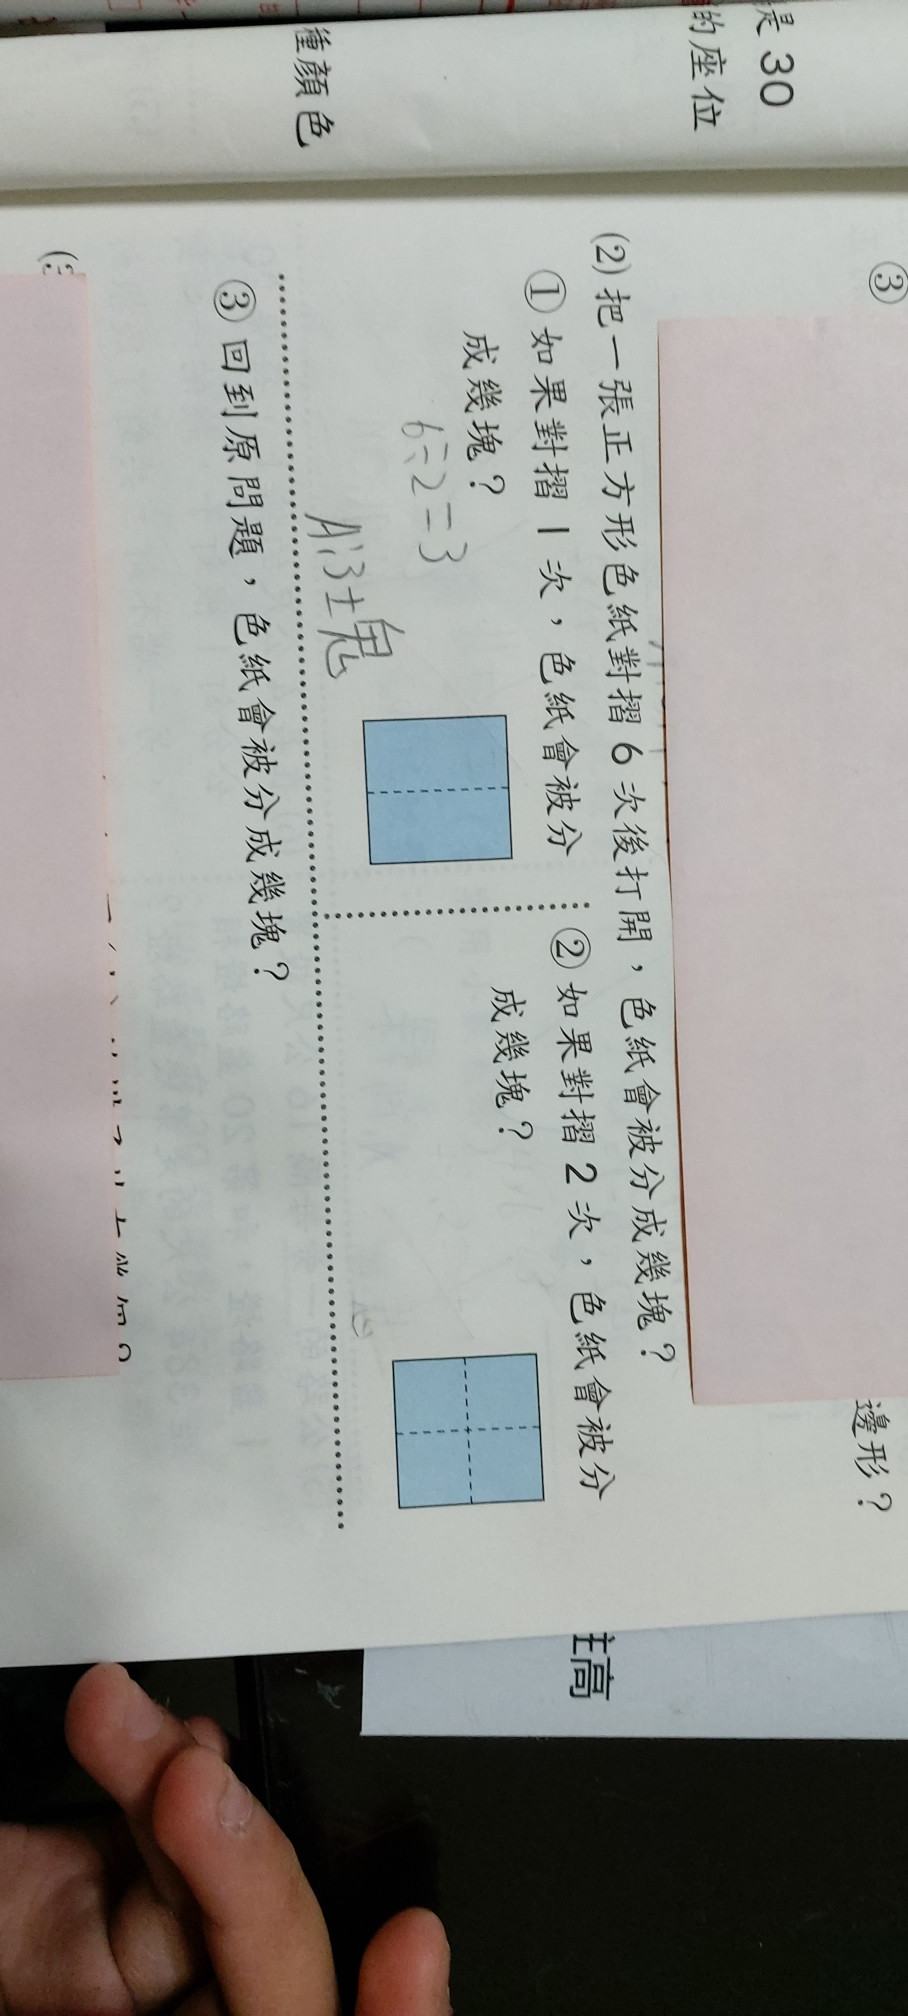 是30
的座位
種顏色
③
邊形？
(2) 把一張正方形色紙對摺6次後打開，色紙會被分成幾塊？
① 如果對摺1次，色紙會被分
成幾塊？
6÷2=3
A:3塊
② 如果對摺2次，色紙會被分
成幾塊？
③ 回到原問題，色紙會被分成幾塊？
高